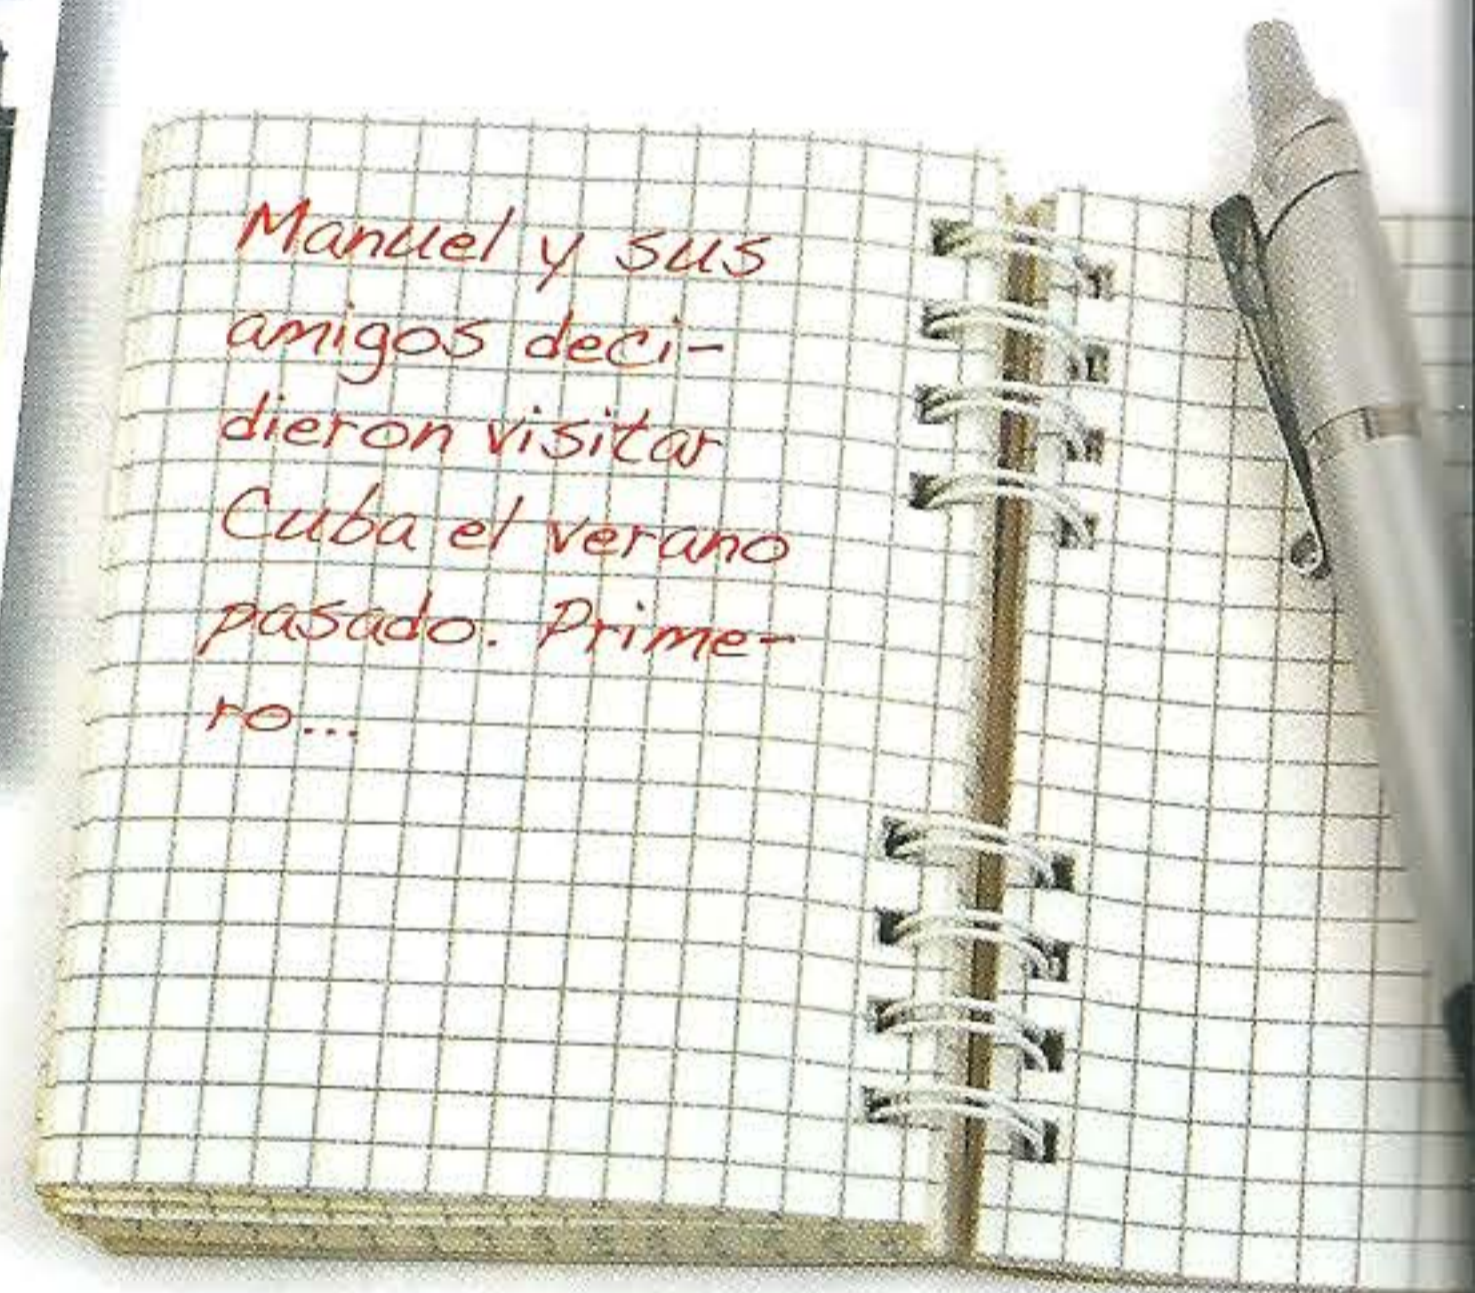 Manuel y sus
amigos deci-
dieron visitar
Cuba el verano
pasado. Prime-
ro...